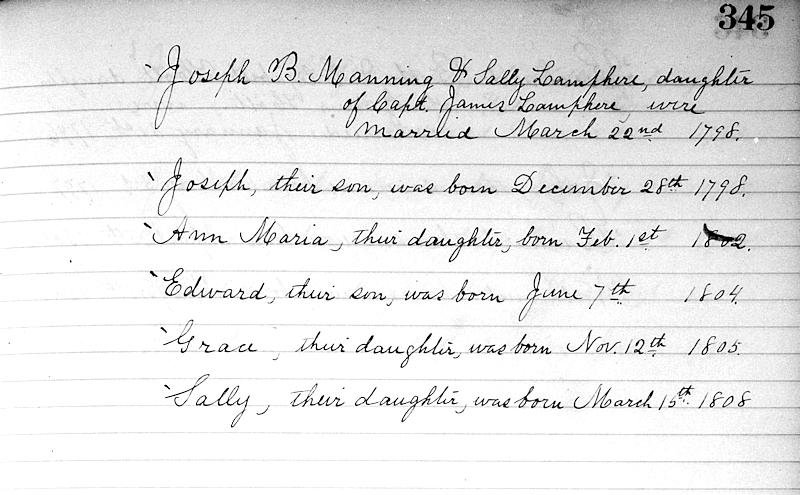 345
Joseph B. Manning & Sally Lamphere, daughter
of Capt. James Lamphere, were
married March 22nd 1798.
Joseph, their son, was born December 28th 1798.
Ann Maria, their daughter, born Feb. 1st 1802.
Edward, their son, was born June 7th 1804.
Grace, their daughter, was born Nov. 12th 1805.
Sally, their daughter, was born March 15th 1808